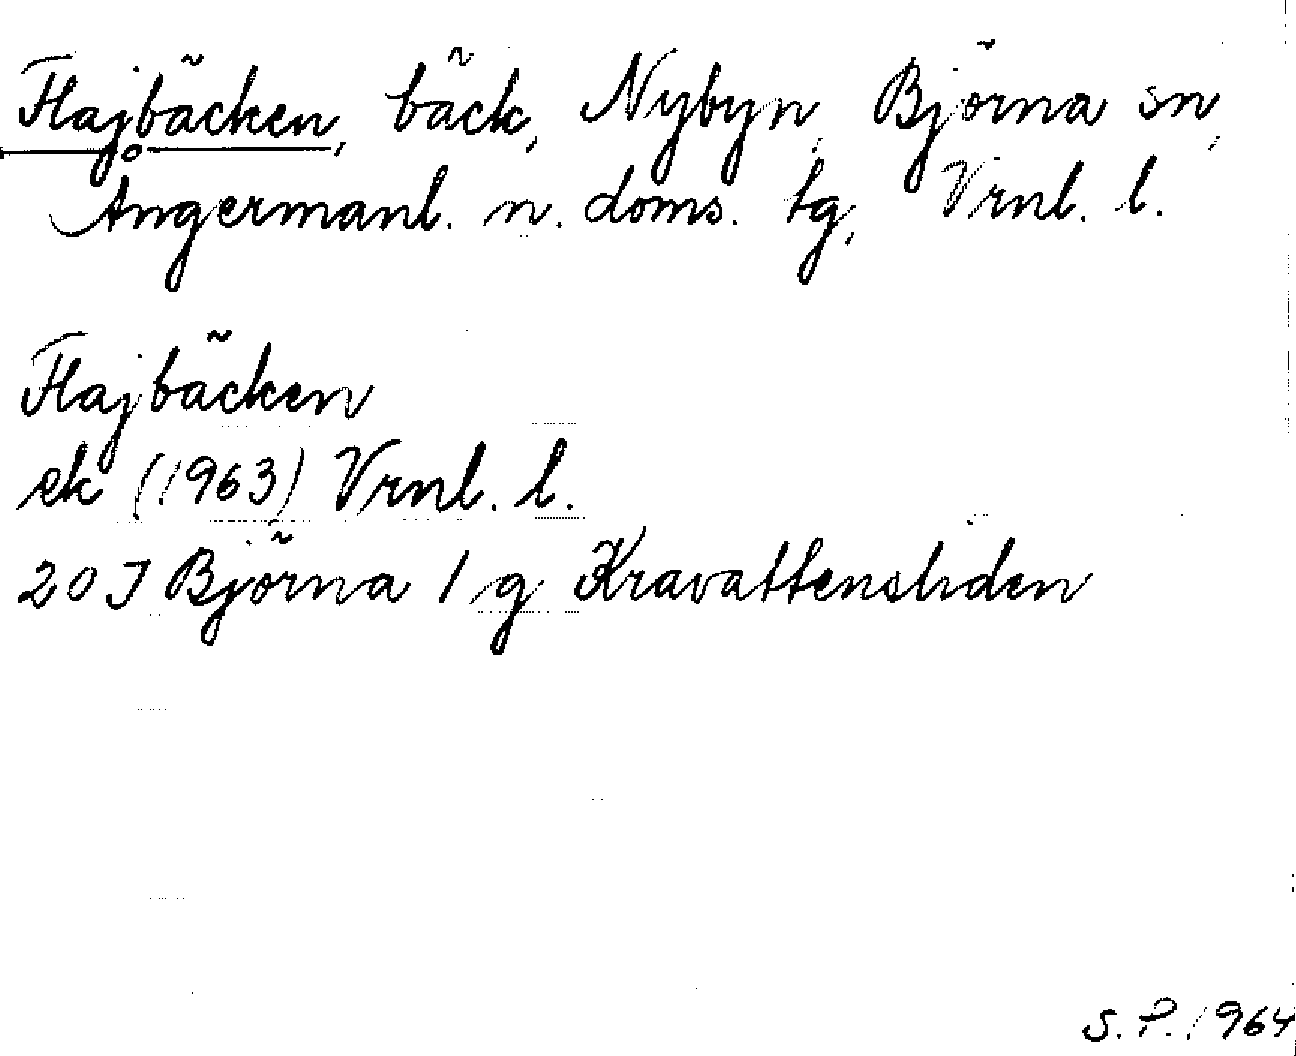 Flajbäcken, bäck, Nybyn, Björna sn,
Ångermanl. n. doms. tg, Vrnl. l.
Flajbäcken
ek (1963) Vrnl. l.
20 J Björna 1 g Kravattensliden
S. P. 1964